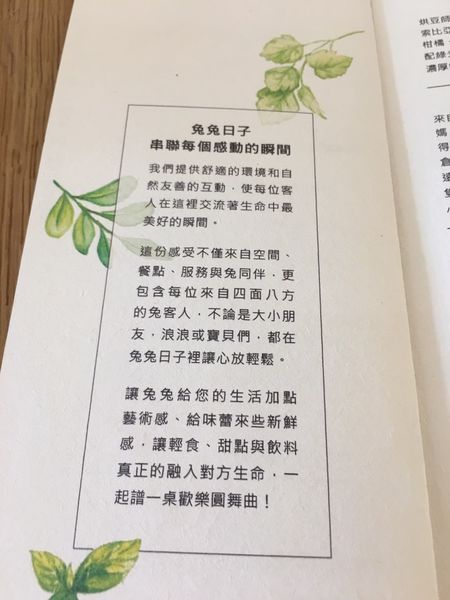 兔兔日子
串聯每個感動的瞬間
我們提供舒適的環境和自
然友善的互動，使每位客
人在這裡交流著生命中最
美好的瞬間。
這份感受不僅來自空間、
餐點、服務與兔同伴，更
包含每位來自四面八方
的兔客人，不論是大小朋
友，浪浪或寶貝們，都在
兔兔日子裡讓心放輕鬆。
讓兔兔給您的生活加點
藝術感、給味蕾來些新鮮
感，讓輕食、甜點與飲料
真正的融入對方生命，一
起譜一桌歡樂圓舞曲！
烘豆師
索比亞
柑橘、
配綠
濃厚
來自
媽
得
倉